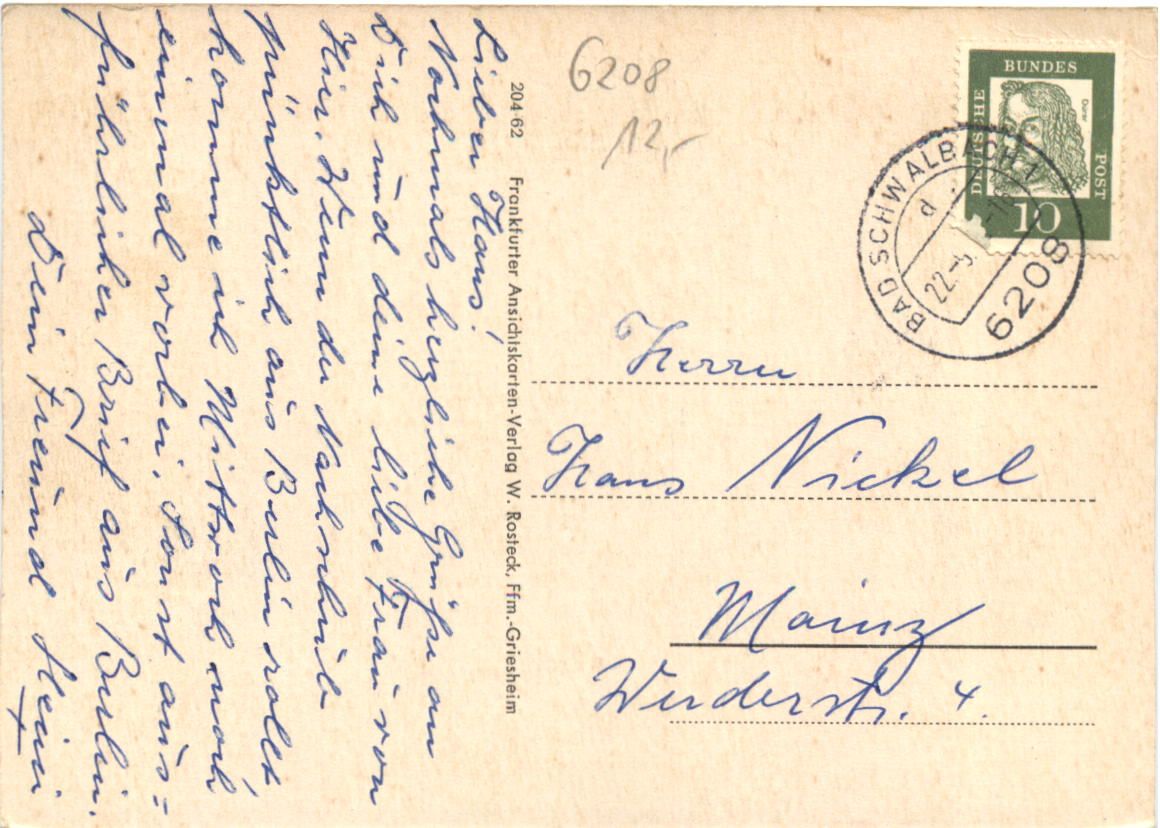 Lieber Hans!
Nochmals herzliche Grüße an
Dich und deine liebe Frau von
Hier. Wenn der Nachschub
pünktlich aus Berlin rollt
komme ich Mittwoch noch
einmal vorbei. Sonst aus=
führlicher Brief aus Berlin.
Dein Freund Heini
204·62 Frankfurter Ansichtskarten-Verlag W. Rosteck, Ffm.-Griesheim
6208
12,-
DEUTSCHE
BUNDES
POST
Dürer
10
BAD SCHWALBACH 1
d
22.-5.
6208
Herrn
Hans Nickel
Mainz
Werderstr. 4.